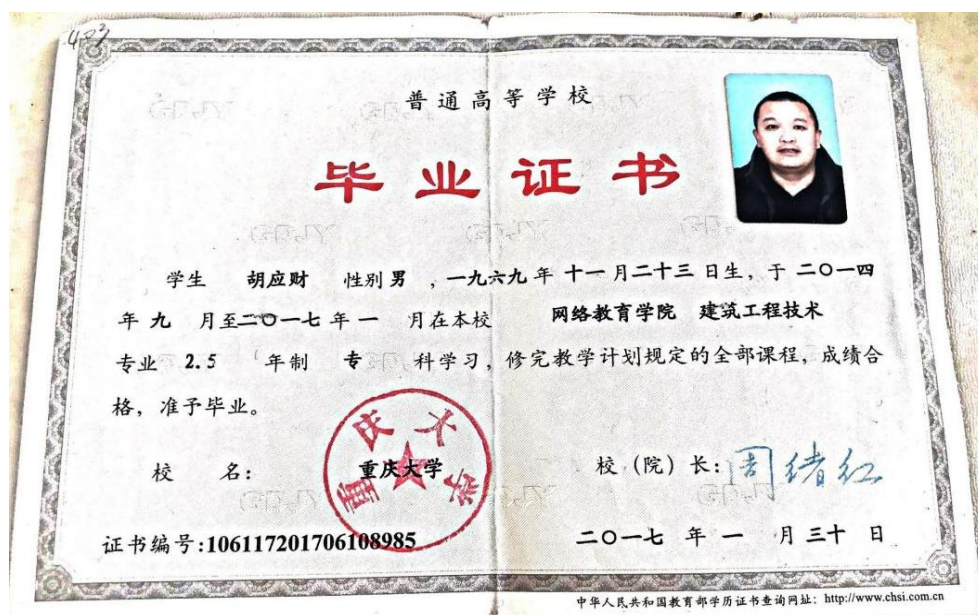 423
普通高等学校
毕业证书
学生 胡应财 性别 男 ,一九六九 年 十一 月二十三 日生, 于 二〇一四
年 九 月至二〇一七 年 一 月在本校 网络教育学院 建筑工程技术
专业 2.5 年制 专 科学习, 修完教学计划规定的全部课程, 成绩合
格, 准予毕业。
校 名: 重庆大学
重庆大学
校 (院) 长: 周绪红
证书编号:106117201706108985
二〇一七 年 一 月 三十 日
中华人民共和国教育部学历证书查询网址: http://www.chsi.com.cn